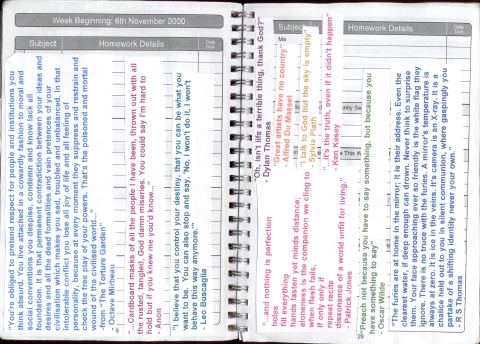 Week Beginning: 6th November 2000
Subject
Homework Details
Date
Due
"You're obliged to pretend respect for people and institutions you
think absurd. You live attached in a cowardly fashion to moral and
social conventions you despise, condemn and know lack all
foundation. It is that permanent contradiction between your ideas and
desires and all the dead formalities and vain pretences of your
civilisation which makes you sad, troubled and unbalanced. In that
intolerable conflict you lose all joy of life and all feeling of
personality, because at every moment they suppress and restrain and
check the free play of your powers. That's the poisoned and mortal
wound of the civilised world..."
-from "The Torture Garden"
-Octave Mirbeau
"...Cardboard masks of all the people I have been, thrown out with all
the rusted, tangled, God damn miseries. You could say I'm hard to
hold but if you knew me you'd know..."
- Anon
"I believe that you control your destiny, that you can be what you
want to be. You can also stop and say, 'No, I won't do it, I won't
behave this way anymore.'"
- Leo Buscaglia
Subject
Homework Details
Date
Due
Ma
"Oh, isn't life a terrible thing, thank God?"
- Dylan Thomas
"Great artists have no country"
- Alfred Du Musset
"I talk to God but the sky is empty"
- Sylvia Plath
"...It's the truth, even if it didn't happen"
- Ken Kesey
"...and nothing is perfection
holes
fill everything
hands fasten yet minds distance;
aloneness is the companion we cling to
when flesh fails,
if only only if
repeat recite
dissonance of a world unfit for living."
- Patrick Jones
"Preach not because you have to say something, but because you
have something to say"
- Oscar Wilde
"The furies are at home in the mirror. It is their address. Even the
clearest water, if deep enough can drown. Never think to surprise
them. Your face approaching ever so friendly is the white flag they
ignore. There is no truce with the furies. A mirror's temperature is
always at zero. It is ice in the veins. Its camera is an X-ray. It is a
chalice held out to you in silent communion, where gaspingly you
partake of a shifting identity never your own."
- R S Thomas